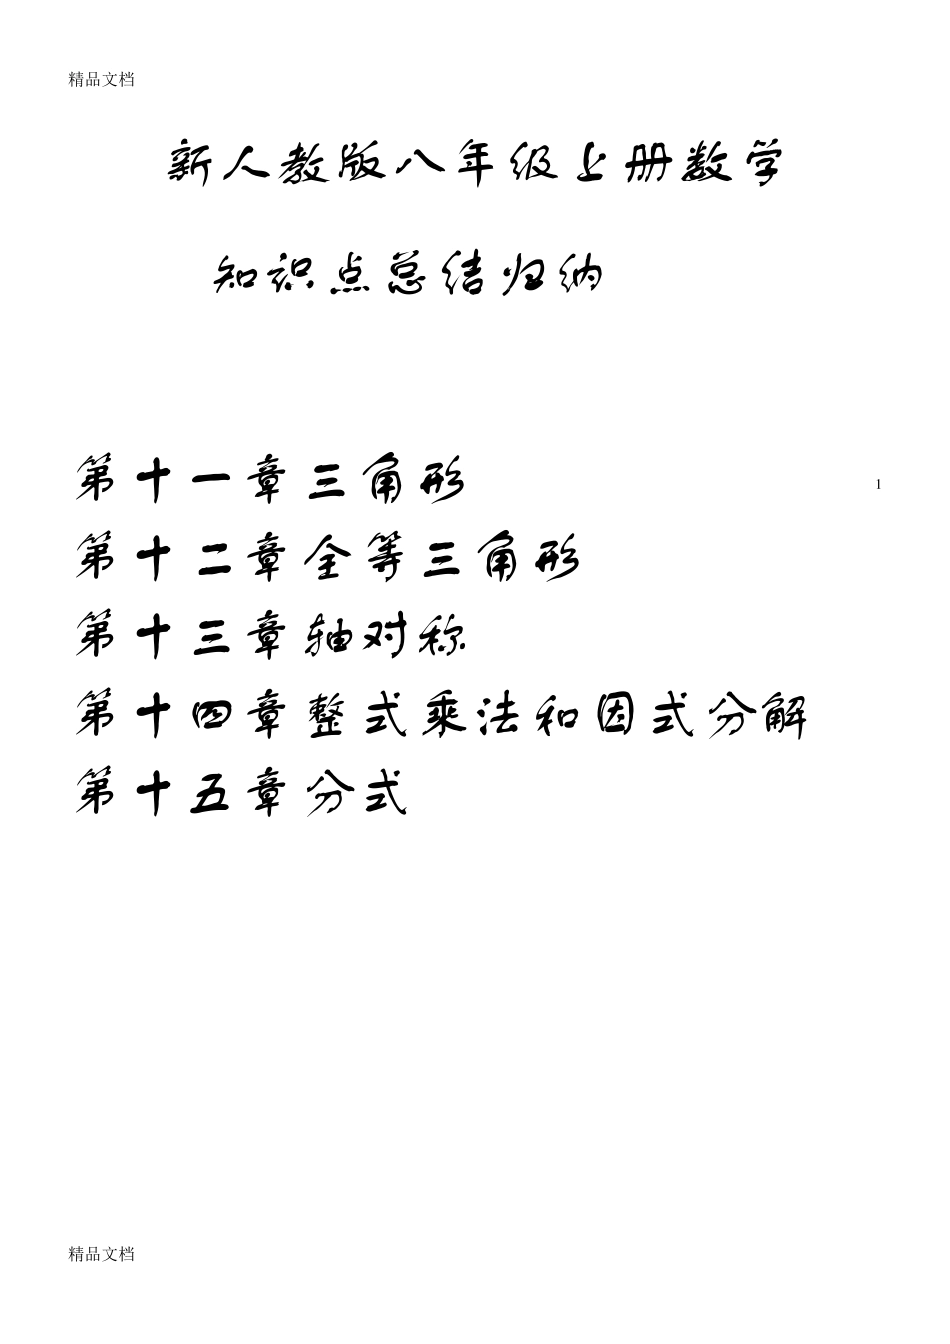 精品文档
新人教版八年级上册数学
知识点总结归纳
第十一章三角形
1
第十二章全等三角形
第十三章轴对称
第十四章整式乘法和因式分解
第十五章分式
精品文档